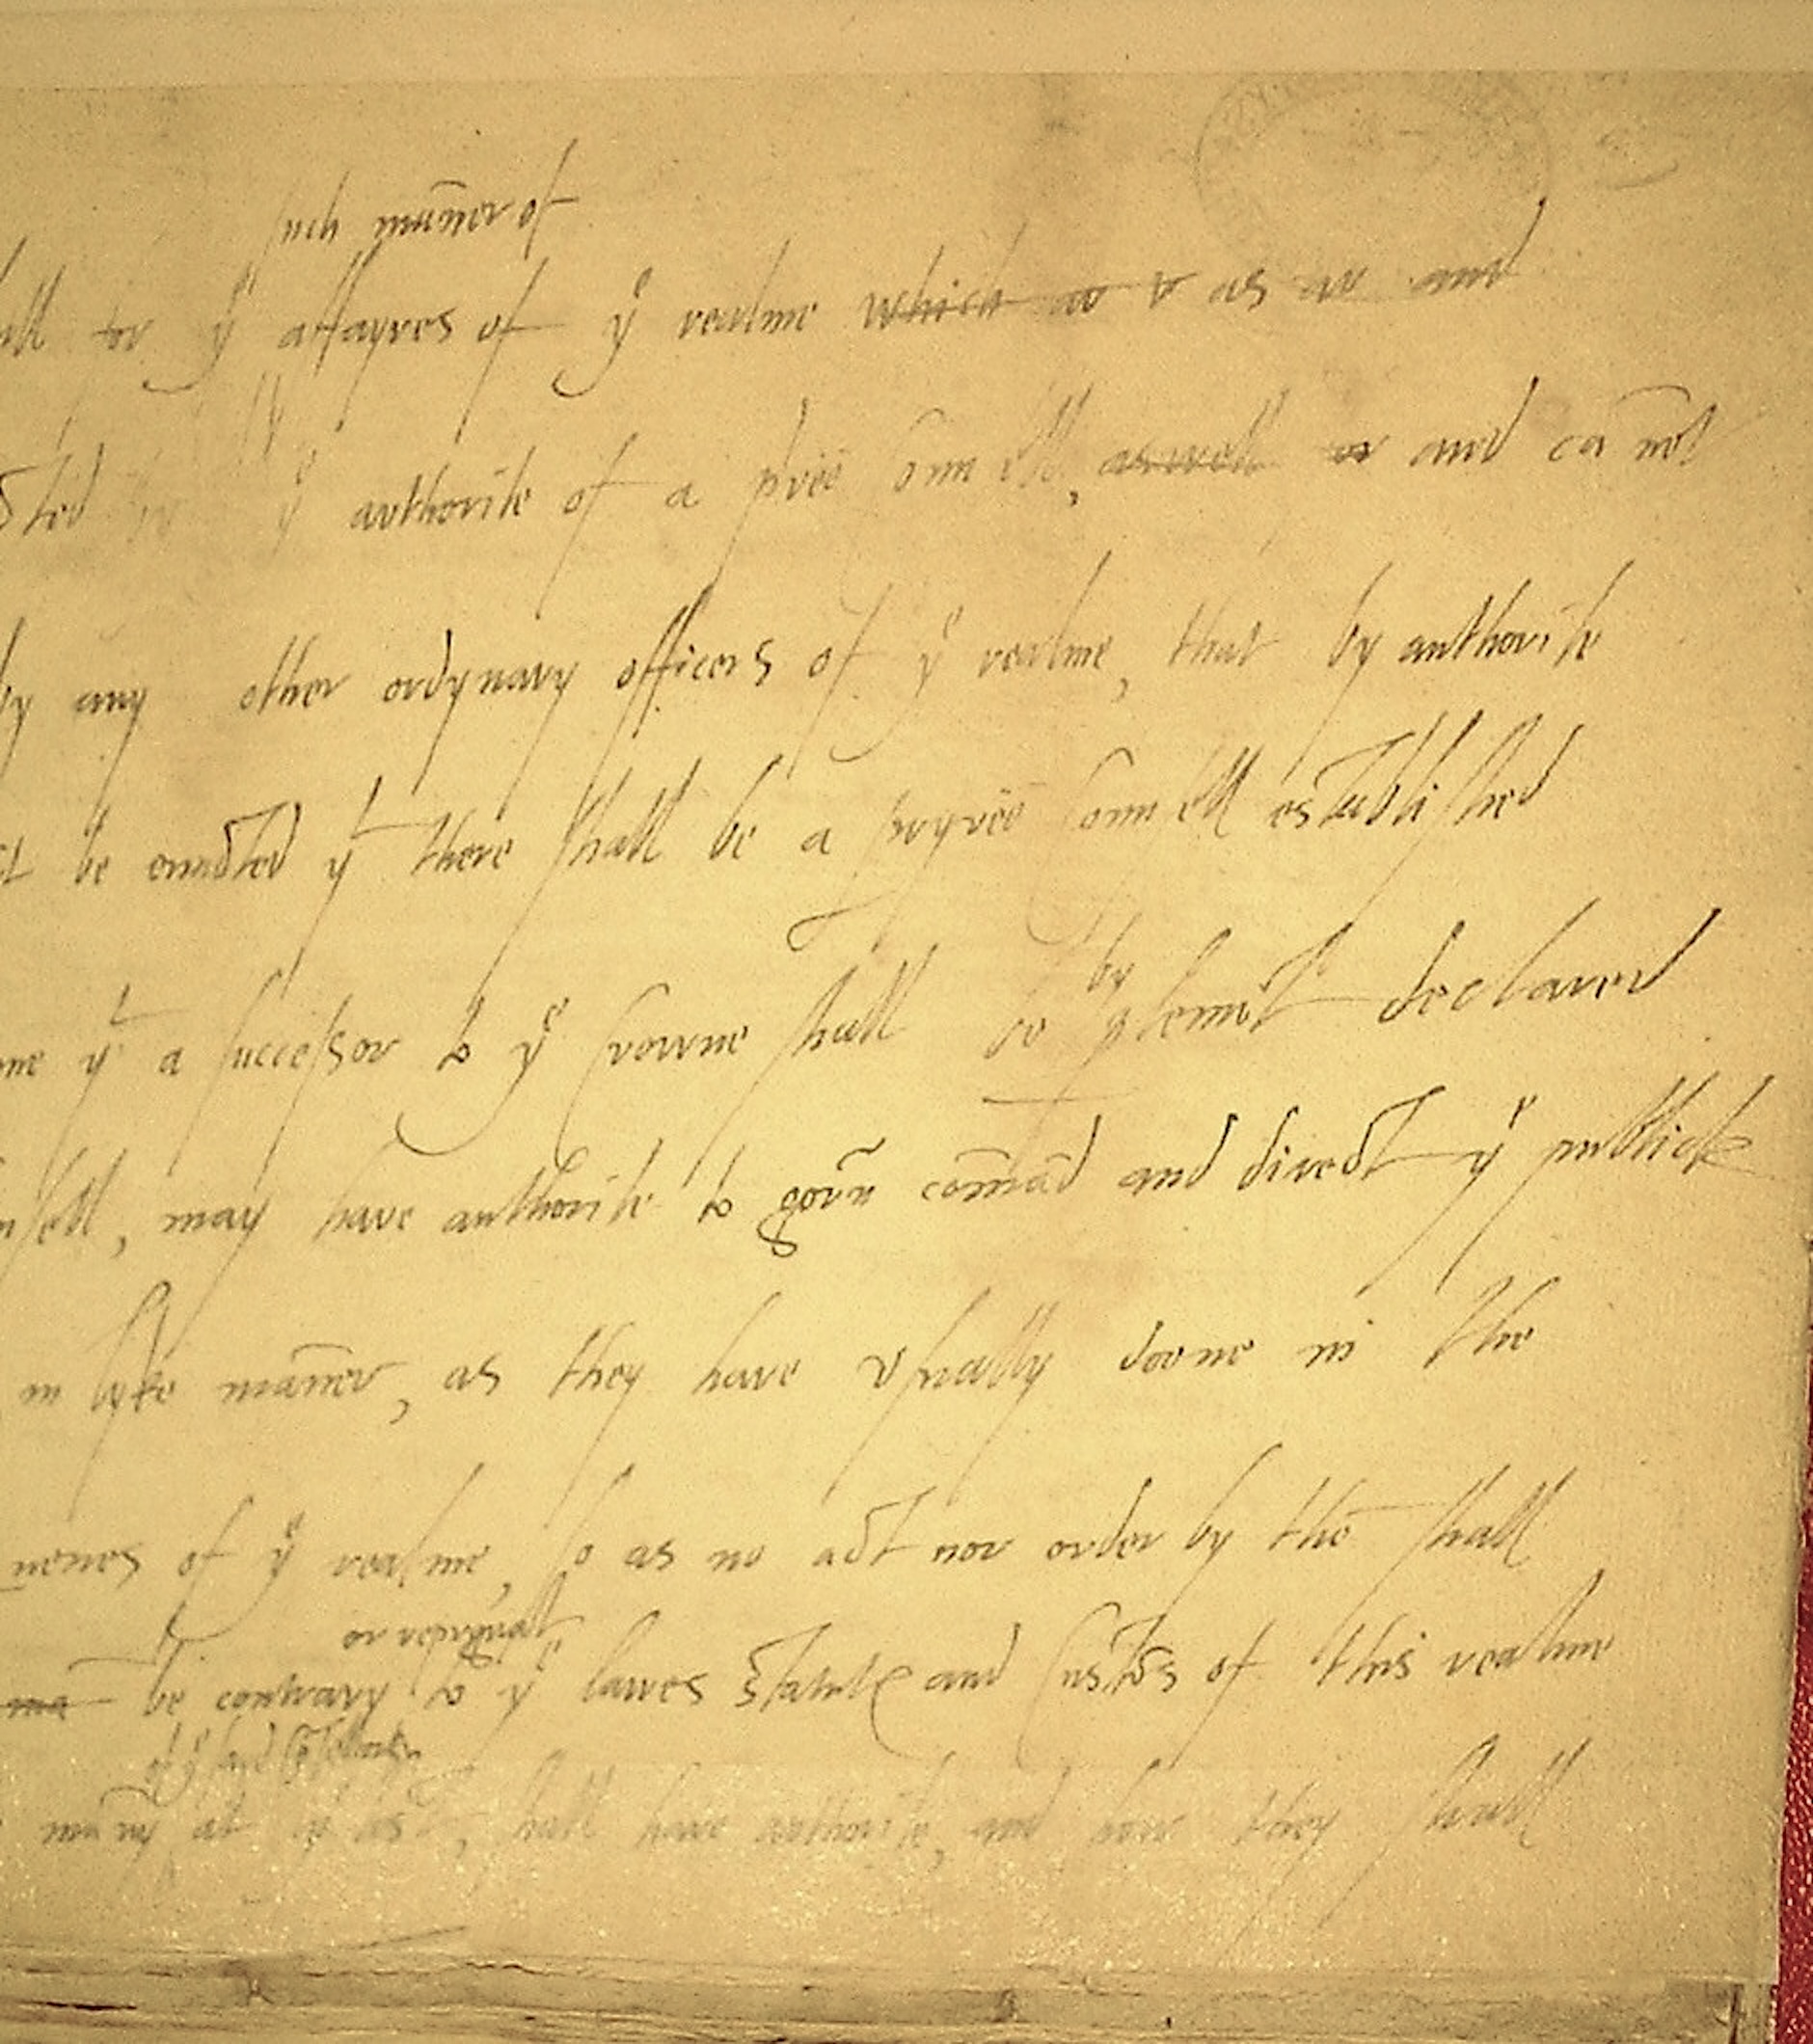 such mañer of
all for yᵉ affayres of yᵉ realme which ar as ar and
cted by yᵉ authorite of a privee Counsell, aswell or and cā not
by any other ordynary officers of yᵉ realme, that by authorite
be enacted yᵗ there shall be a pryvee Counsell established
me yᵗ a successor to yᵉ Crowne shall be by ꝑlemēt declared
nsell, may have authorite to govn̄ com̄ād and direct yᵉ publick
in lyke mañer, as they have usually doone in the
of yᵉ realme, so as no act nor order by thē shall
or repugnāt
be contrary to yᵉ lawes statutꝭ and Custōs of this realme
of yᵉ said
many at yᵉ lest, shall have authorite, and how they shall